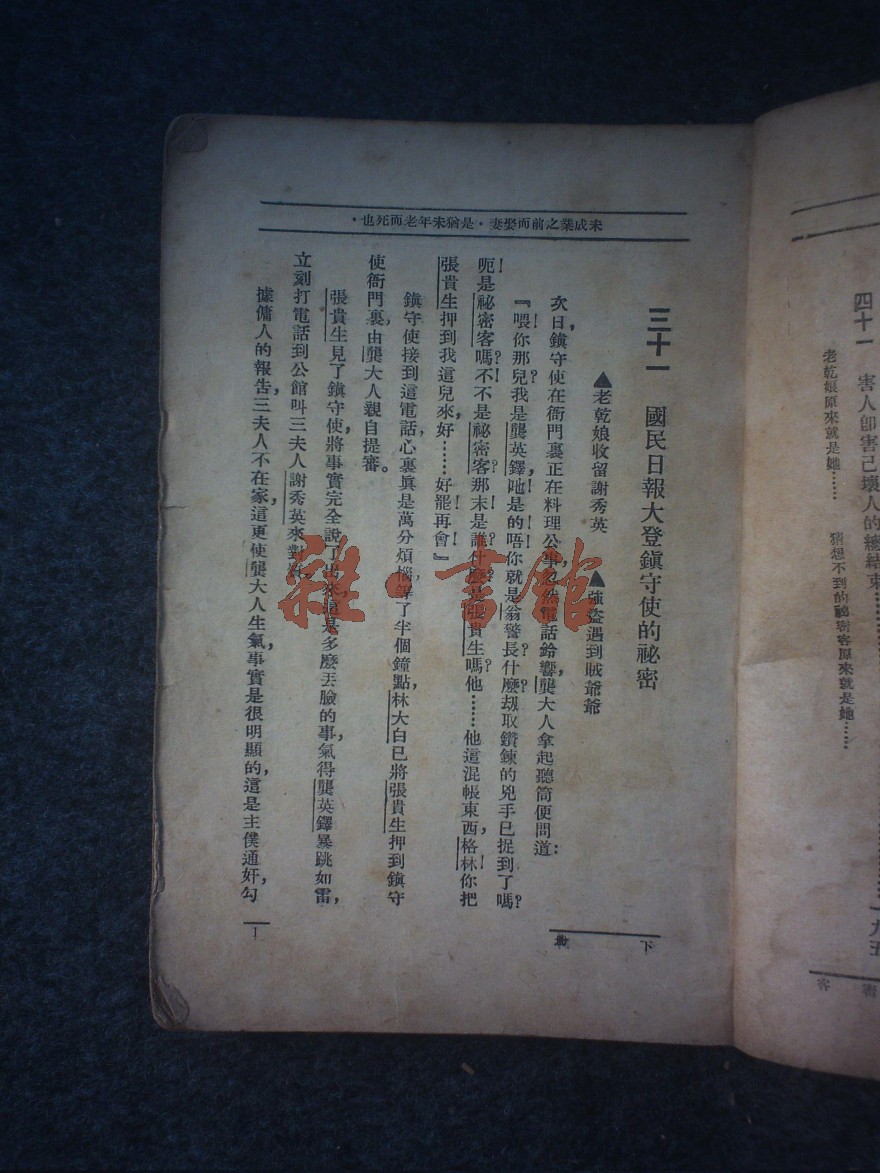 未成業之前而娶妻·是猶未年老而死也·
三十一　國民日報大登鎮守使的祕密
▲老乾娘收留謝秀英　▲強盜遇到賊爺爺
次日，鎮守使在衙門裏正在料理公事，忽然電話鈴響，龔大人拿起聽筒便問道：
『喂！你那兒？我是龔英鐸，吔！是的！唔！你就是翁警長？什麼？刼取鑽鍊的兇手已捉到了嗎？
呃！是祕密客嗎？不！不是祕密客？那末是誰？什麼？是張貴生嗎？他……他這混帳東西，格林！你把
張貴生押到我這兒來，好……好！罷！再會！』
鎮守使接到這電話，心裏眞是萬分煩惱，等了半個鐘點，林大白已將張貴生押到鎮守
使衙門裏，由龔大人親自提審。
張貴生見了鎮守使，將事實完全說了出來，這是多麼丟臉的事，氣得龔英鐸暴跳如雷，
立刻打電話到公館叫三夫人謝秀英來對質。
據傭人的報告，三夫人不在家，這更使龔大人生氣，事實是很明顯的，這是主僕通奸，勾
下
1
四十一　害人卽害己壞人的總結束……一九五
老乾娘原來就是她……　猜想不到的祕密客原來就是她……
密客
雜·書館